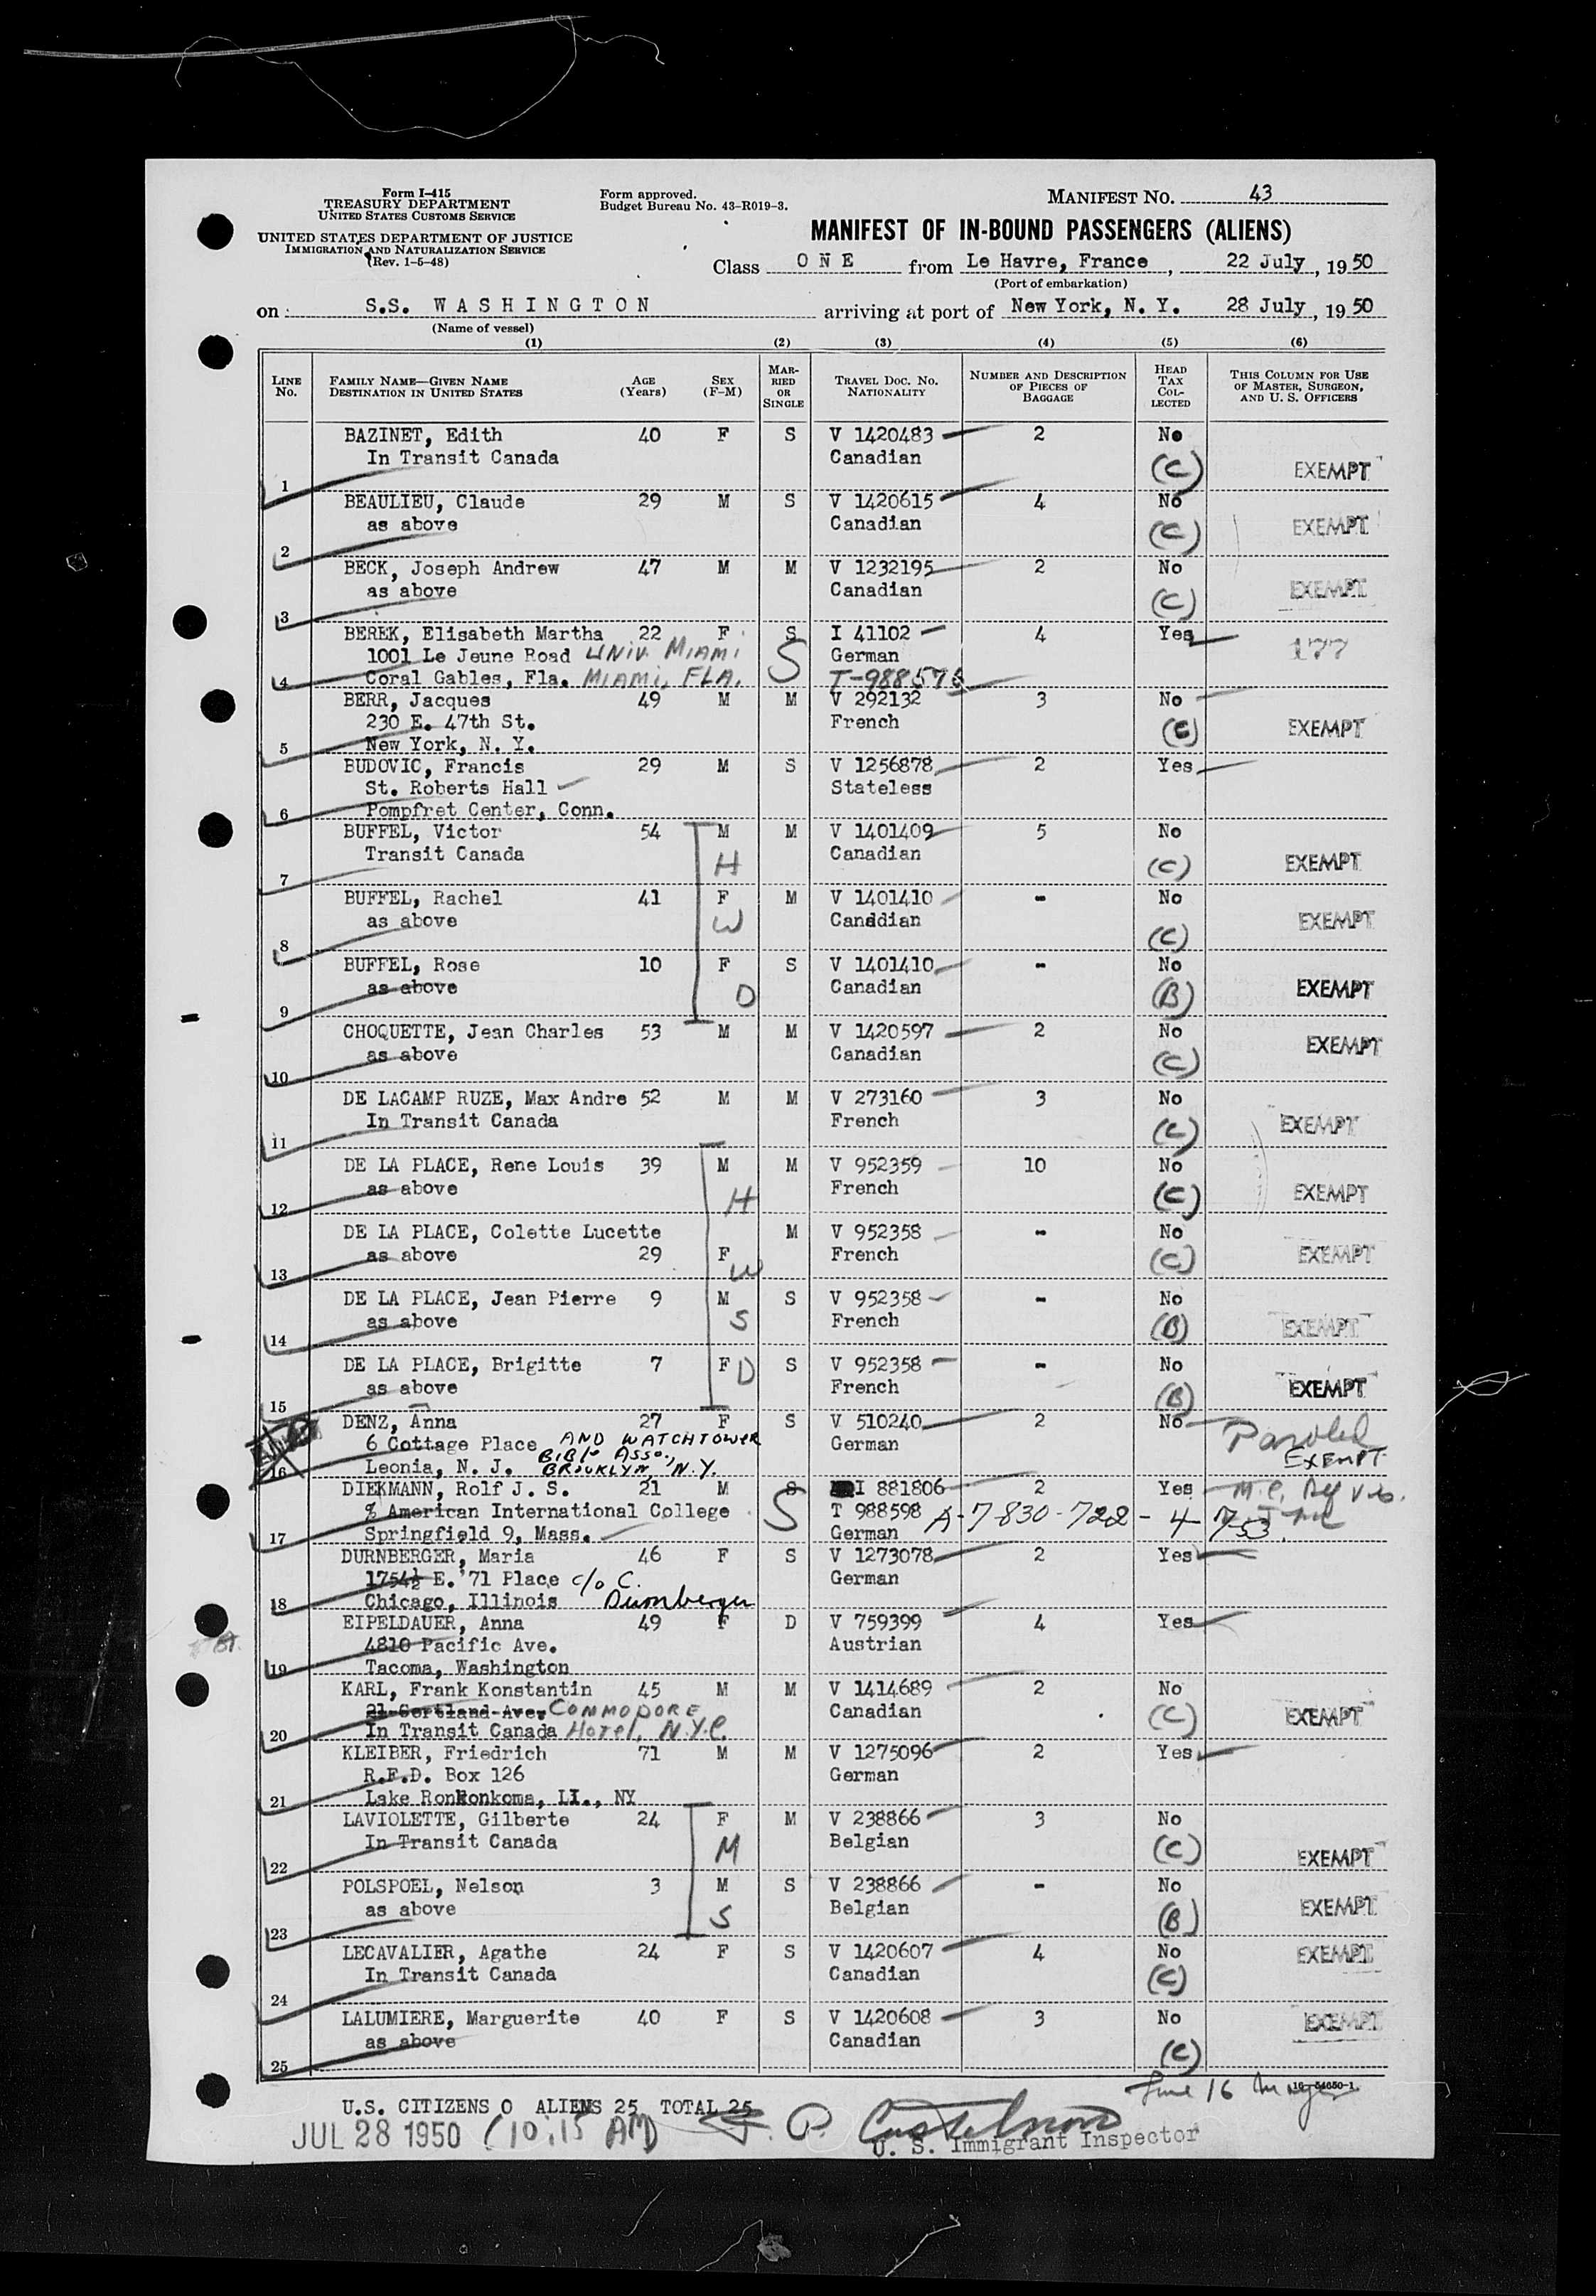 Form I-415
TREASURY DEPARTMENT
UNITED STATES CUSTOMS SERVICE
UNITED STATES DEPARTMENT OF JUSTICE
IMMIGRATION AND NATURALIZATION SERVICE
(Rev. 1-5-48)
Form approved.
Budget Bureau No. 43-R019-3.
MANIFEST NO. 43
MANIFEST OF IN-BOUND PASSENGERS (ALIENS)
Class ONE from Le Havre, France, 22 July, 1950
(Port of embarkation)
on S.S. WASHINGTON arriving at port of New York, N. Y. 28 July, 1950
(Name of vessel)
(1) (2) (3) (4) (5) (6)
LINE No. FAMILY NAME—GIVEN NAME DESTINATION IN UNITED STATES AGE (Years) SEX (F-M) MARRIED OR SINGLE TRAVEL DOC. NO. NATIONALITY NUMBER AND DESCRIPTION OF PIECES OF BAGGAGE HEAD TAX COLLECTED THIS COLUMN FOR USE OF MASTER, SURGEON, AND U. S. OFFICERS
BAZINET, Edith 40 F S V 1420483 2 No
In Transit Canada Canadian (C) EXEMPT
1
BEAULIEU, Claude 29 M S V 1420615 4 No
as above Canadian (C) EXEMPT
2
BECK, Joseph Andrew 47 M M V 1232195 2 No
as above Canadian (C) EXEMPT
3
BEREK, Elisabeth Martha 22 F S I 41102 4 Yes
1001 Le Jeune Road UNIV. MIAMI S German 177
4 Coral Gables, Fla. MIAMI, FLA. T-988575
BERR, Jacques 49 M M V 292132 3 No
230 E. 47th St. French (C) EXEMPT
5 New York, N. Y.
BUDOVIC, Francis 29 M S V 1256878 2 Yes
St. Roberts Hall Stateless
6 Pompfret Center, Conn.
BUFFEL, Victor 54 M M V 1401409 5 No
Transit Canada H Canadian (C) EXEMPT
7
BUFFEL, Rachel 41 F M V 1401410 - No
as above W Canddian (C) EXEMPT
8
BUFFEL, Rose 10 F S V 1401410 - No
as above D Canadian (B) EXEMPT
9
CHOQUETTE, Jean Charles 53 M M V 1420597 2 No
as above Canadian (C) EXEMPT
10
DE LACAMP RUZE, Max Andre 52 M M V 273160 3 No
In Transit Canada French (C) EXEMPT
11
DE LA PLACE, Rene Louis 39 M M V 952359 10 No
as above H French (C) EXEMPT
12
DE LA PLACE, Colette Lucette M V 952358 - No
as above 29 F W French (C) EXEMPT
13
DE LA PLACE, Jean Pierre 9 M S V 952358 - No
as above S French (B) EXEMPT
14
DE LA PLACE, Brigitte 7 F D S V 952358 - No
as above French (B) EXEMPT
15
DENZ, Anna 27 F S V 510240 2 No Paroled
6 Cottage Place AND WATCHTOWER German EXEMPT
BIBLE ASSO.,
16 Leonia, N. J. BROOKLYN, N.Y.
DIEKMANN, Rolf J. S. 21 M S I 881806 2 Yes
% American International College S T 988598 A-7-830-722 - 4
17 Springfield 9, Mass. German
DURNBERGER, Maria 46 F S V 1273078 2 Yes
1754½ E. 71 Place c/o C. German
18 Chicago, Illinois Durnberger
EIPELDAUER, Anna 49 F D V 759399 4 Yes
4810 Pacific Ave. Austrian
19 Tacoma, Washington
KARL, Frank Konstantin 45 M M V 1414689 2 No
21 Cortland Ave. COMMODORE Canadian (C) EXEMPT
20 In Transit Canada HOTEL, N.Y.C.
KLEIBER, Friedrich 71 M M V 1275096 2 Yes
R.F.D. Box 126 German
21 Lake Ronkonkoma, LI., NY
LAVIOLETTE, Gilberte 24 F M V 238866 3 No
In Transit Canada M Belgian (C) EXEMPT
22
POLSPOEL, Nelson 3 M S V 238866 - No
as above S Belgian (B) EXEMPT
23
LECAVALIER, Agathe 24 F S V 1420607 4 No EXEMPT
In Transit Canada Canadian (C)
24
LALUMIERE, Marguerite 40 F S V 1420608 3 No EXEMPT
as above Canadian (C)
25
16—54650-1
U.S. CITIZENS 0 ALIENS 25 TOTAL 25
JUL 28 1950 (10:15 AM)
U. S. Immigrant Inspector